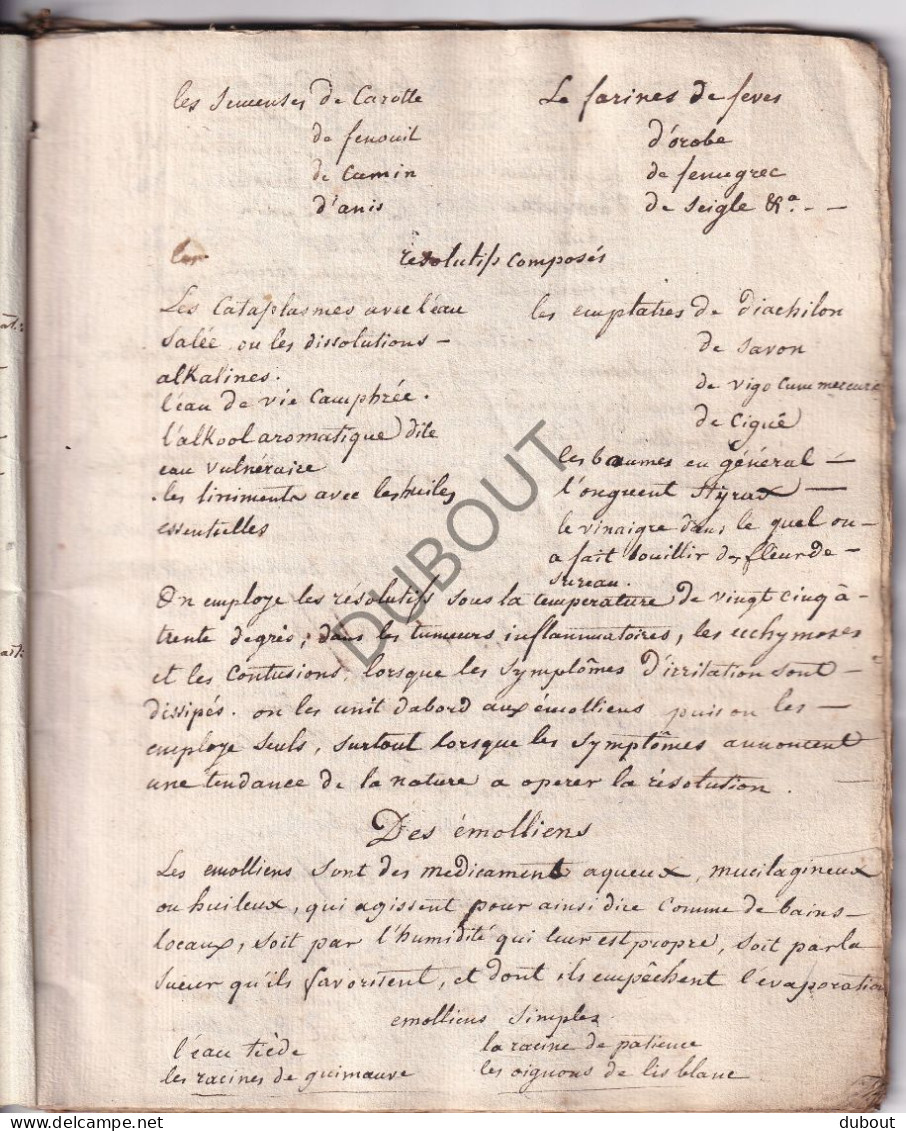 les semenses de Carotte
de fenouil
de Cumin
d'anis
Le farines de feves
d'orobe
de fenugrec
de seigle &a. - -
les
résolutifs composés
Les Cataplasmes avec l'eau
salée ou les dissolutions -
alkalines.
l'eau de vie Camphrée.
l'alkool aromatique dite
eau vulnéraire
. les liniments avec les huiles
essentielles
les emplatres de diachilon
de savon
de vigo cum mercure
de Ciguë
les baumes en général -
l'onguent styrax -
le vinaigre dans le quel on -
a fait bouillir des fleur de -
sureau.
On employe les résolutifs sous la temperature de vingt cinq à -
trente degrés; dans les tumeurs inflammatoires, les ecchymoses
et les Contusions, lorsque les symptômes d'irritation sont -
dissipés. on les unit dabord aux émolliens puis on les -
employe seuls, surtout lorsque les symptômes annoncent
une tendance de la nature a operer la résolution.
Des émolliens
Les emolliens sont des medicaments aqueux, mucilagineux
ou huileux, qui agissent pour ainsi dire comme de bains -
locaux, soit par l'humidité qui leur est propre, soit par la
sueur qu'ils favorisent, et dont ils empêchent l'évaporation
emolliens simples
l'eau tiède
les racines de guimauve
la racine de patience
les oignons de lis blanc
DUBOUT
dubout
delcampe.net